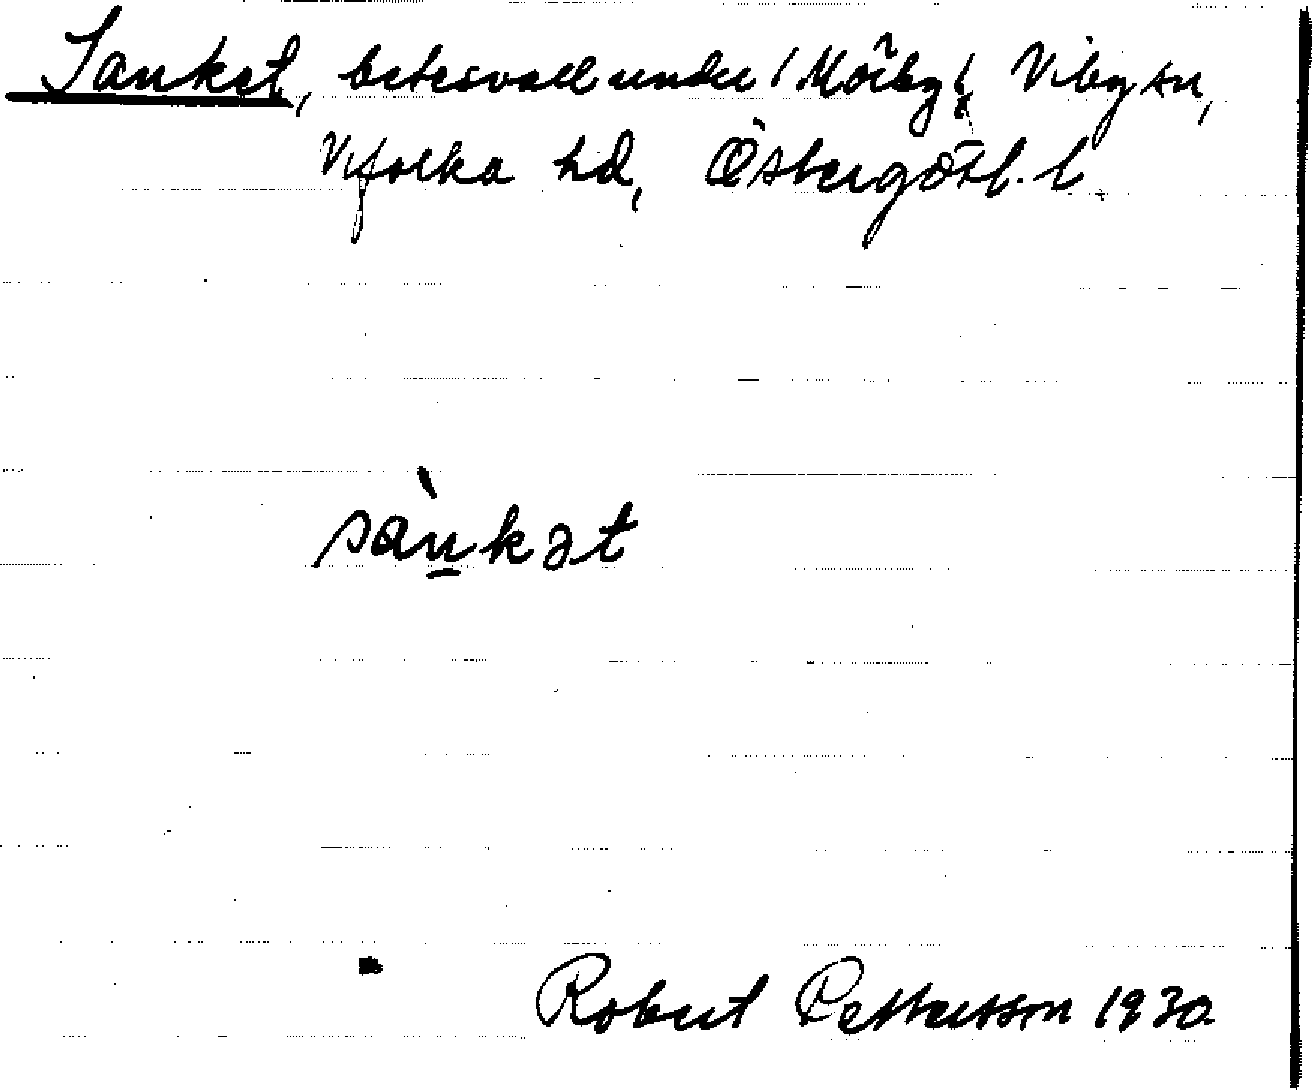 Sanket, betesvall under (Mörby), Viby sn,
Vifolka hd, Östergötl. l.
sànkət
Robert Pettersson 1930